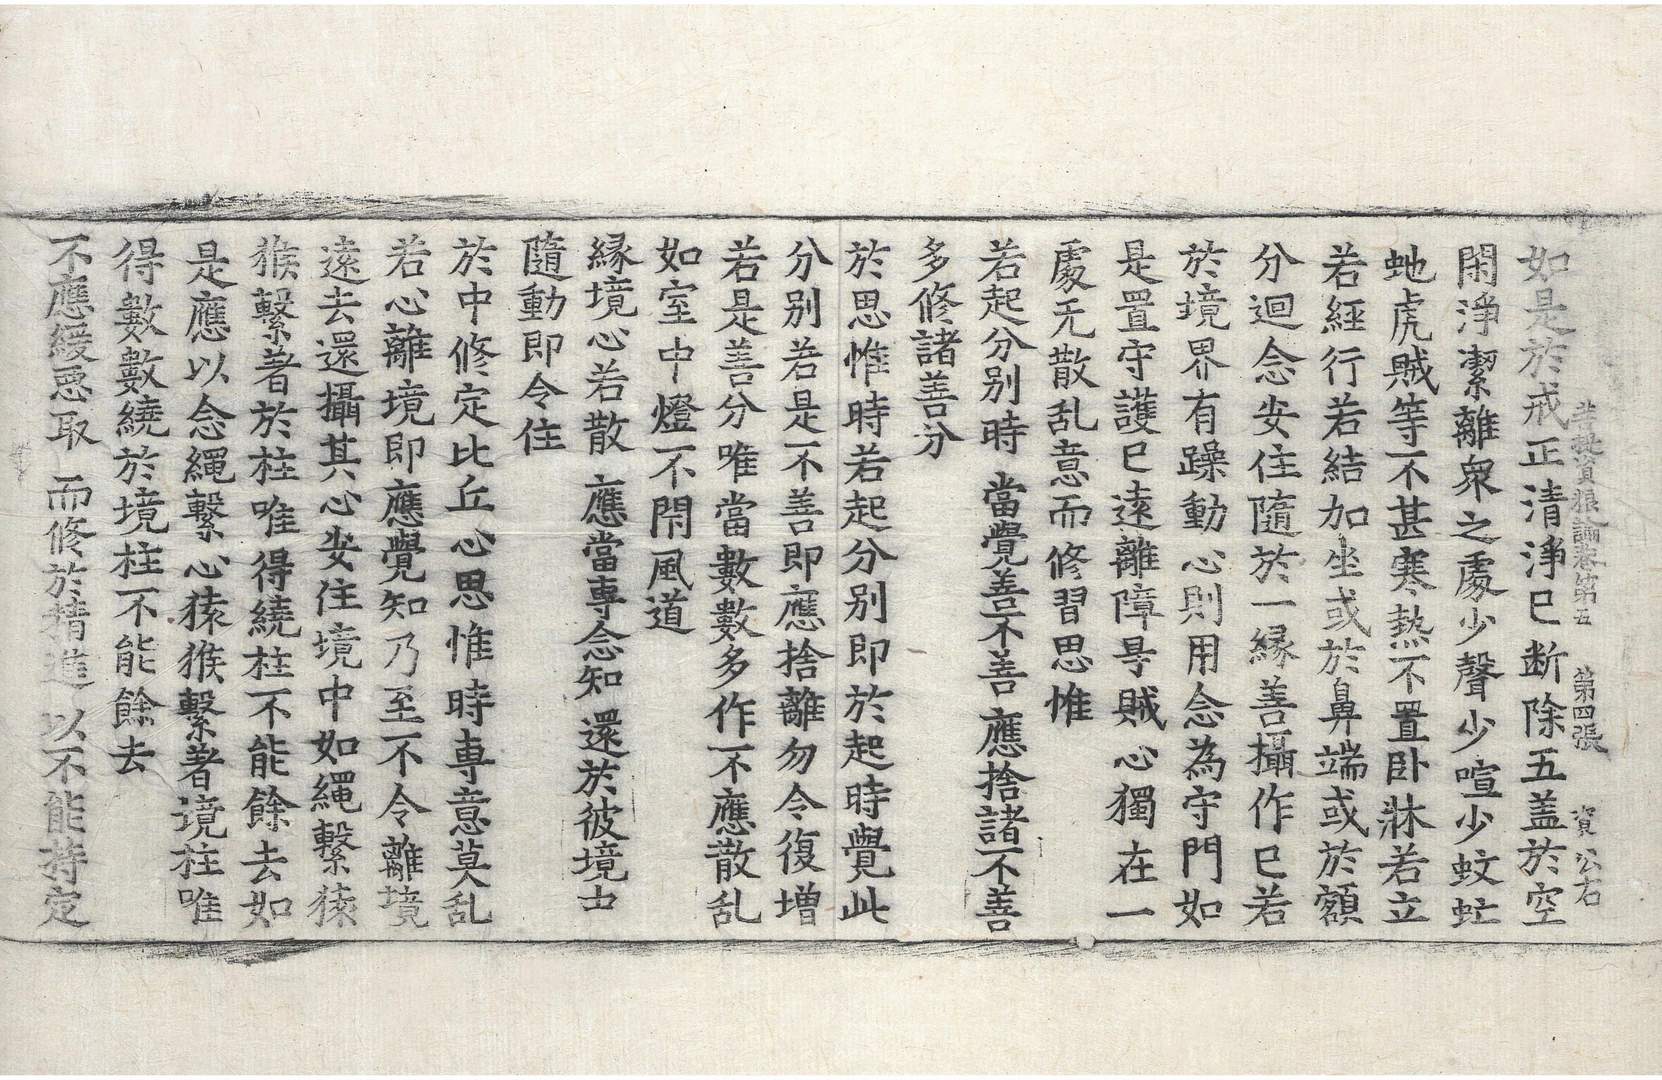 菩提資粮論卷第五　第四張　資　公右
如是於戒正清淨已断除五盖於空
閑淨潔離衆之處少聲少喧少蚊虻
虵虎賊等不甚寒熱不置卧牀若立
若經行若結加坐或於鼻端或於額
分迴念安住隨於一縁善攝作已若
於境界有躁動心則用念為守門如
是置守護已遠離障㝵賊心獨在一
處无散乱意而修習思惟
若起分别時　當覺善不善　應捨諸不善
多修諸善分
於思惟時若起分别即於起時覺此
分别若是不善即應捨離勿令復增
若是善分唯當數數多作不應散乱
如室中燈不閇風道
縁境心若散　應當専念知　還於彼境中
隨動即令住
於中修定比丘心思惟時専意莫乱
若心離境即應覺知乃至不令離境
遠去還攝其心安住境中如繩繫猿
猴繫著於柱唯得繞柱不能餘去如
是應以念繩繫心猿猴繫著境柱唯
得數數繞於境柱不能餘去
不應緩惡取　而修於精進　以不能持定